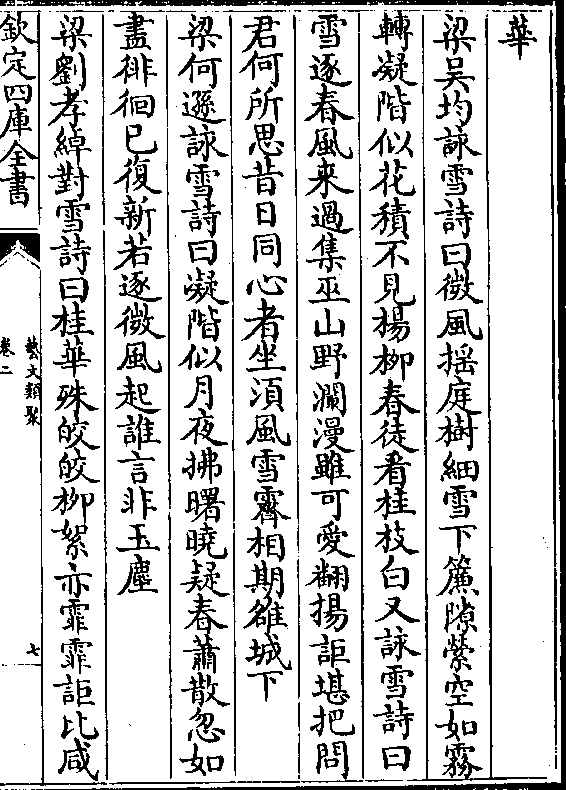 華
梁吴均詠雪詩曰微風揺庭樹細雪下簾隙縈空如霧
轉凝階似花積不見楊栁春徒看桂枝白又詠雪詩曰
雪逐春風来過集巫山野瀾漫雖可愛翻揚詎堪把問
君何所思昔日同心者坐須風雪霽相期雒城下
梁何遜詠雪詩曰凝階似月夜拂曙曉疑春蕭散忽如
盡徘徊已復新若逐微風起誰言非玉塵
梁劉孝綽對雪詩曰桂華殊皎皎栁絮亦霏霏詎比咸
欽定四庫全書
藝文類聚
卷二
七